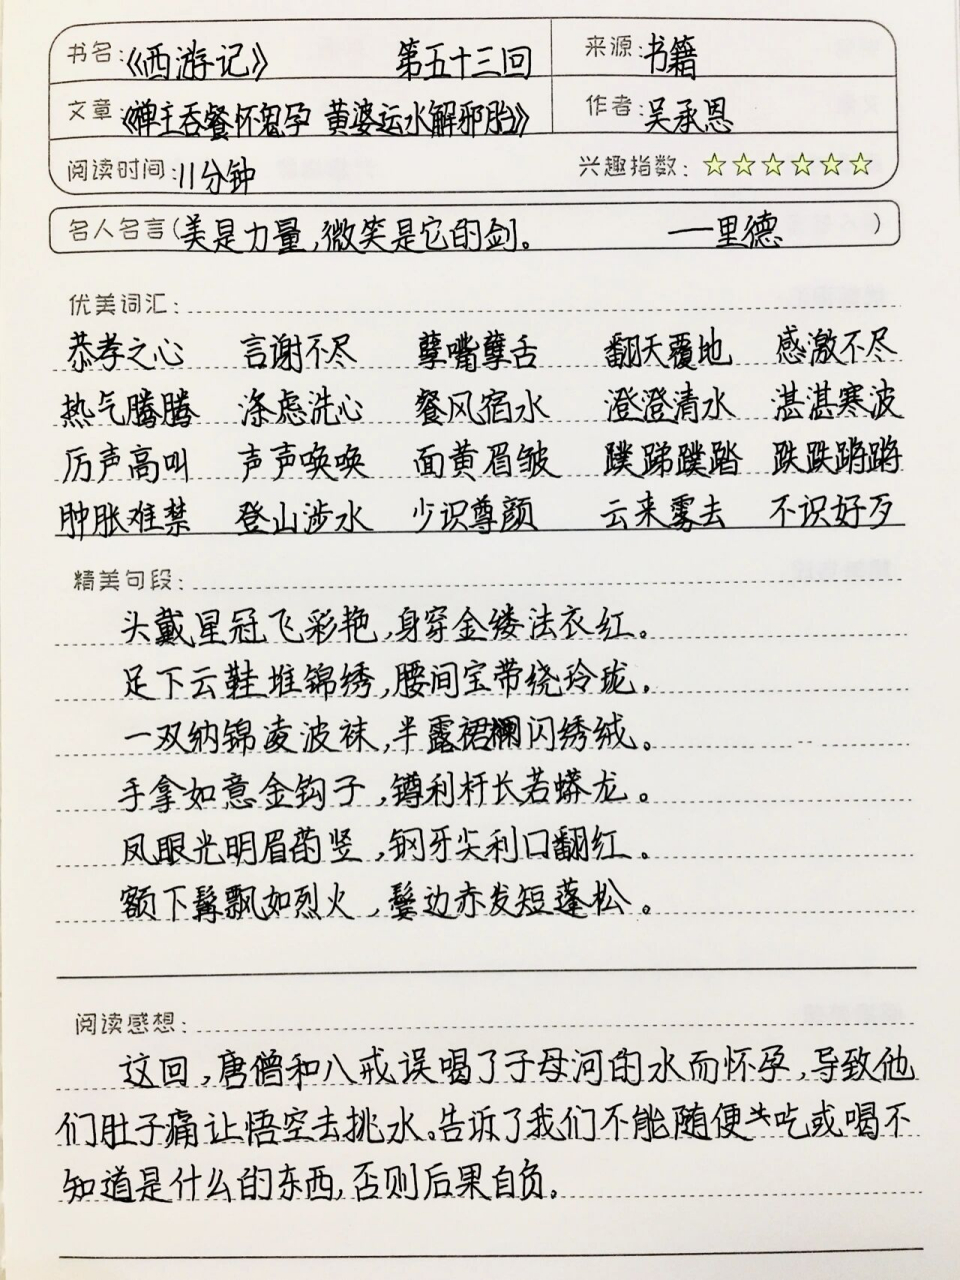 书名:《西游记》 第五十三回 来源:书籍
文章:《禅主吞餐怀鬼孕 黄婆运水解邪胎》 作者:吴承恩
阅读时间:11分钟 兴趣指数:☆☆☆☆☆☆
名人名言(美是力量,微笑是它的剑。 ——里德)
优美词汇:
恭孝之心 言谢不尽 孽嘴孽舌 翻天覆地 感激不尽
热气腾腾 涤虑洗心 餐风宿水 澄澄清水 湛湛寒波
厉声高叫 声声唤唤 面黄眉皱 蹼踊蹼踏 跌跌蹡蹡
肿胀难禁 登山涉水 少识尊颜 云来雾去 不识好歹
精美句段:
头戴星冠飞彩艳,身穿金缕法衣红。
足下云鞋堆锦绣,腰间宝带绕玲珑。
一双纳锦凌波袜,半露裙襕闪绣绒。
手拿如意金钩子,鐏利杆长若蟒龙。
凤眼光明眉菂竖,钢牙尖利口翻红。
额下髯飘如烈火,鬓边赤发短蓬松。
阅读感想:
这回,唐僧和八戒误喝了子母河的水而怀孕,导致他
们肚子痛让悟空去挑水。告诉了我们不能随便吃或喝不
知道是什么的东西,否则后果自负。